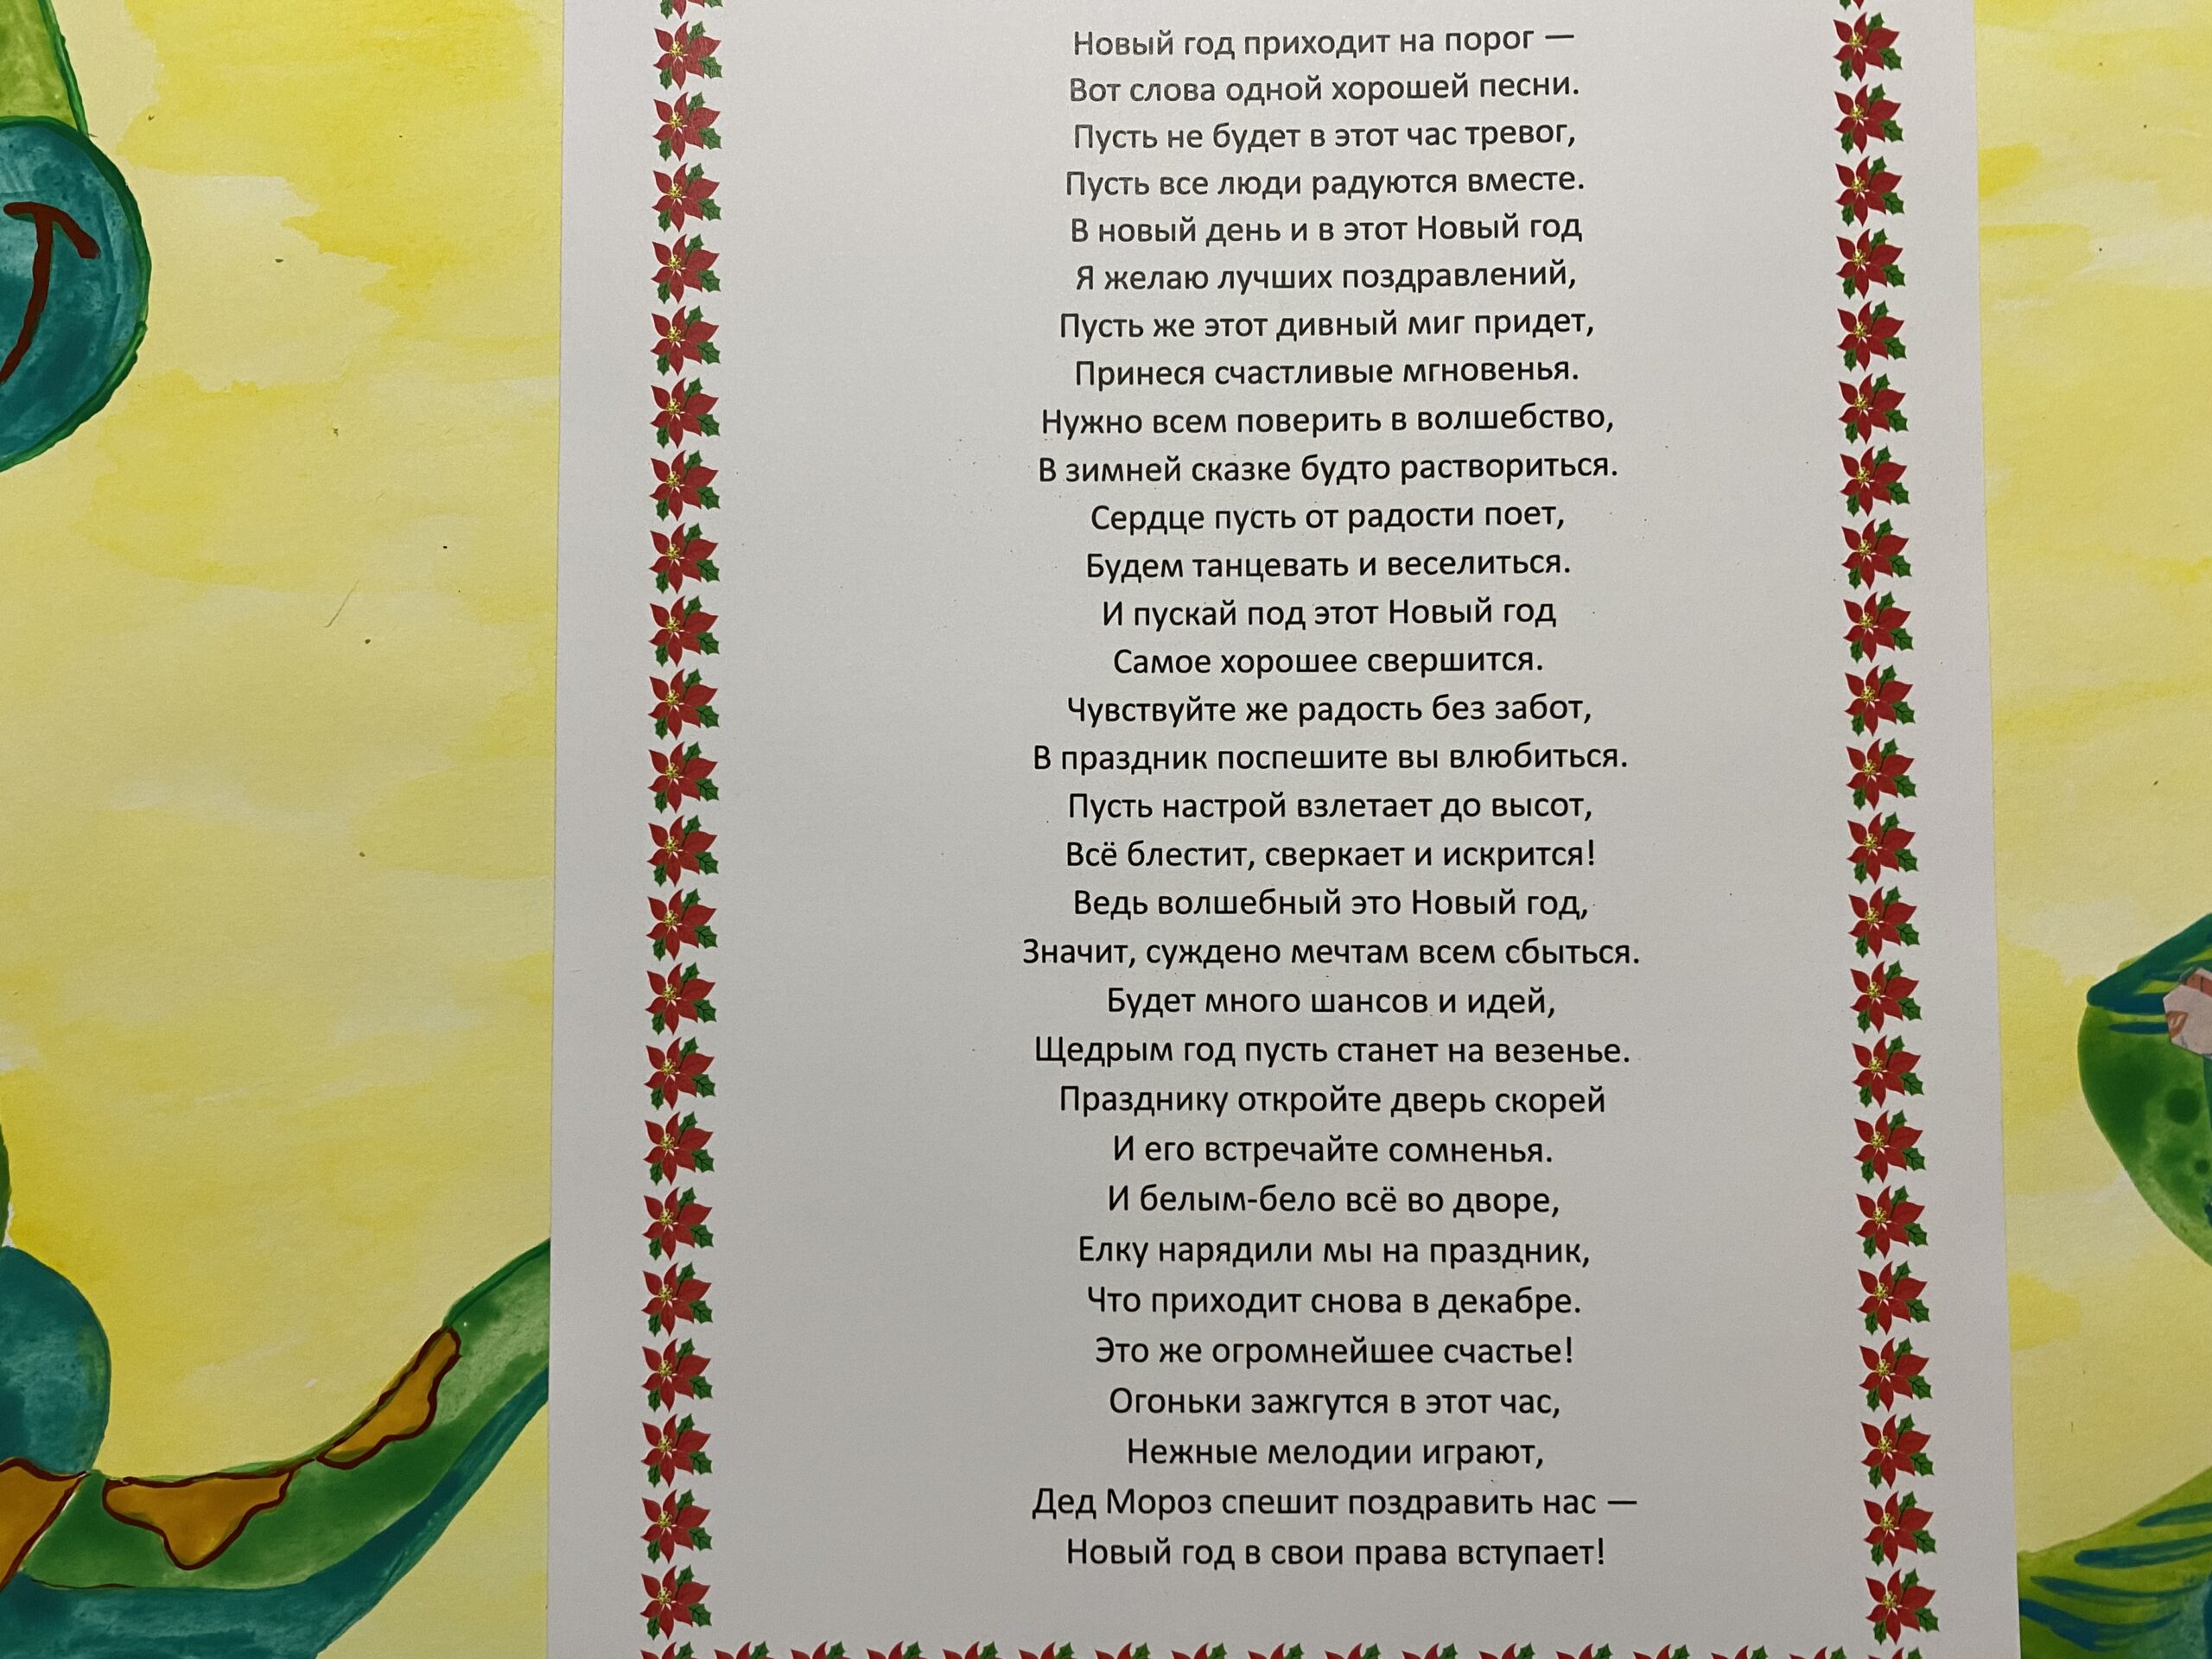 Новый год приходит на порог —
Вот слова одной хорошей песни.
Пусть не будет в этот час тревог,
Пусть все люди радуются вместе.
В новый день и в этот Новый год
Я желаю лучших поздравлений,
Пусть же этот дивный миг придет,
Принеся счастливые мгновенья.
Нужно всем поверить в волшебство,
В зимней сказке будто раствориться.
Сердце пусть от радости поет,
Будем танцевать и веселиться.
И пускай под этот Новый год
Самое хорошее свершится.
Чувствуйте же радость без забот,
В праздник поспешите вы влюбиться.
Пусть настрой взлетает до высот,
Всё блестит, сверкает и искрится!
Ведь волшебный это Новый год,
Значит, суждено мечтам всем сбыться.
Будет много шансов и идей,
Щедрым год пусть станет на везенье.
Празднику откройте дверь скорей
И его встречайте сомненья.
И белым-бело всё во дворе,
Елку нарядили мы на праздник,
Что приходит снова в декабре.
Это же огромнейшее счастье!
Огоньки зажгутся в этот час,
Нежные мелодии играют,
Дед Мороз спешит поздравить нас —
Новый год в свои права вступает!